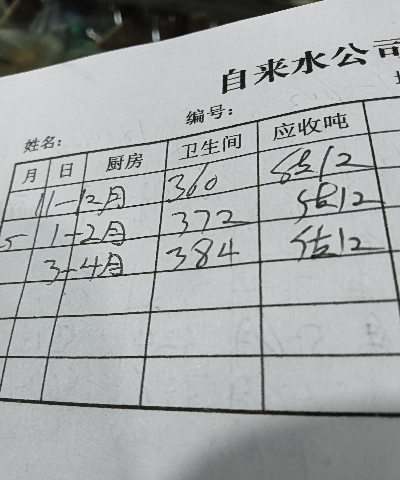 自来水公司
编号：
姓名：
月 日 厨房 卫生间 应收吨
11-12月 360 估12
5 1-2月 372 估12
3-4月 384 估12